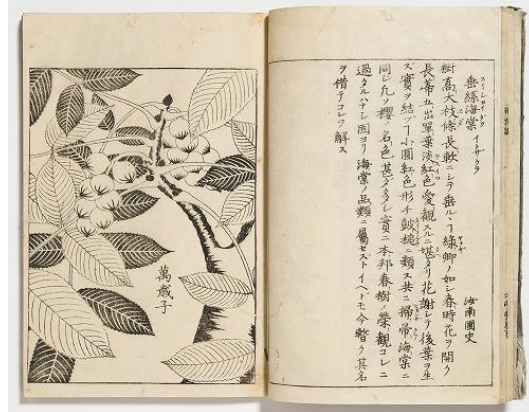 垂絲海棠 イトサクラ
海南國史
樹高大枝條長軟ニシテ垂ルヽヿ綠卿ノ如シ春時花ヲ開ク
長蒂五出單葉淡紅色愛観スルニ堪タリ花謝シテ後葉ヲ生
ズ實ヲ結ブヿ小圓紅色形チ鼓槌ニ類ス共ニ掃帚海棠ニ
同シ凡ソ櫻ノ名色甚ダ多シ實ニ本邦春樹ノ榮観コレニ
過タルハナシ固ヨリ海棠ノ品類ニ屬セストイヘドモ今暫ク其名
ヲ借テコレヲ解ス
萬歳子